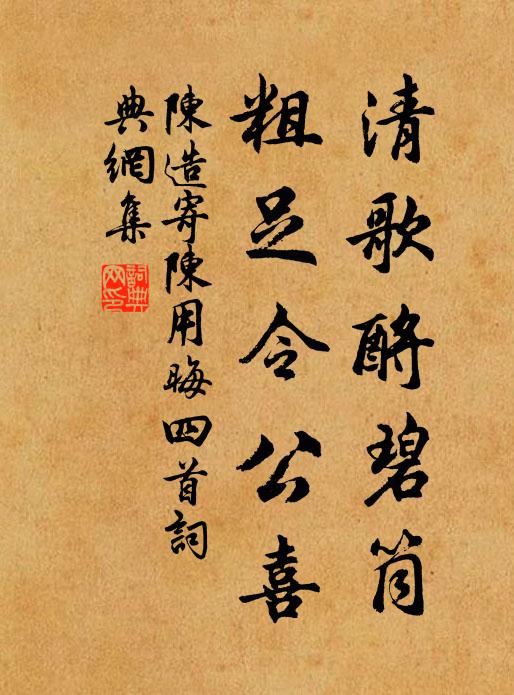 清歌酹碧筒
粗足令公喜
陳造寄陳用晦四首詞
典網集
詞典網印